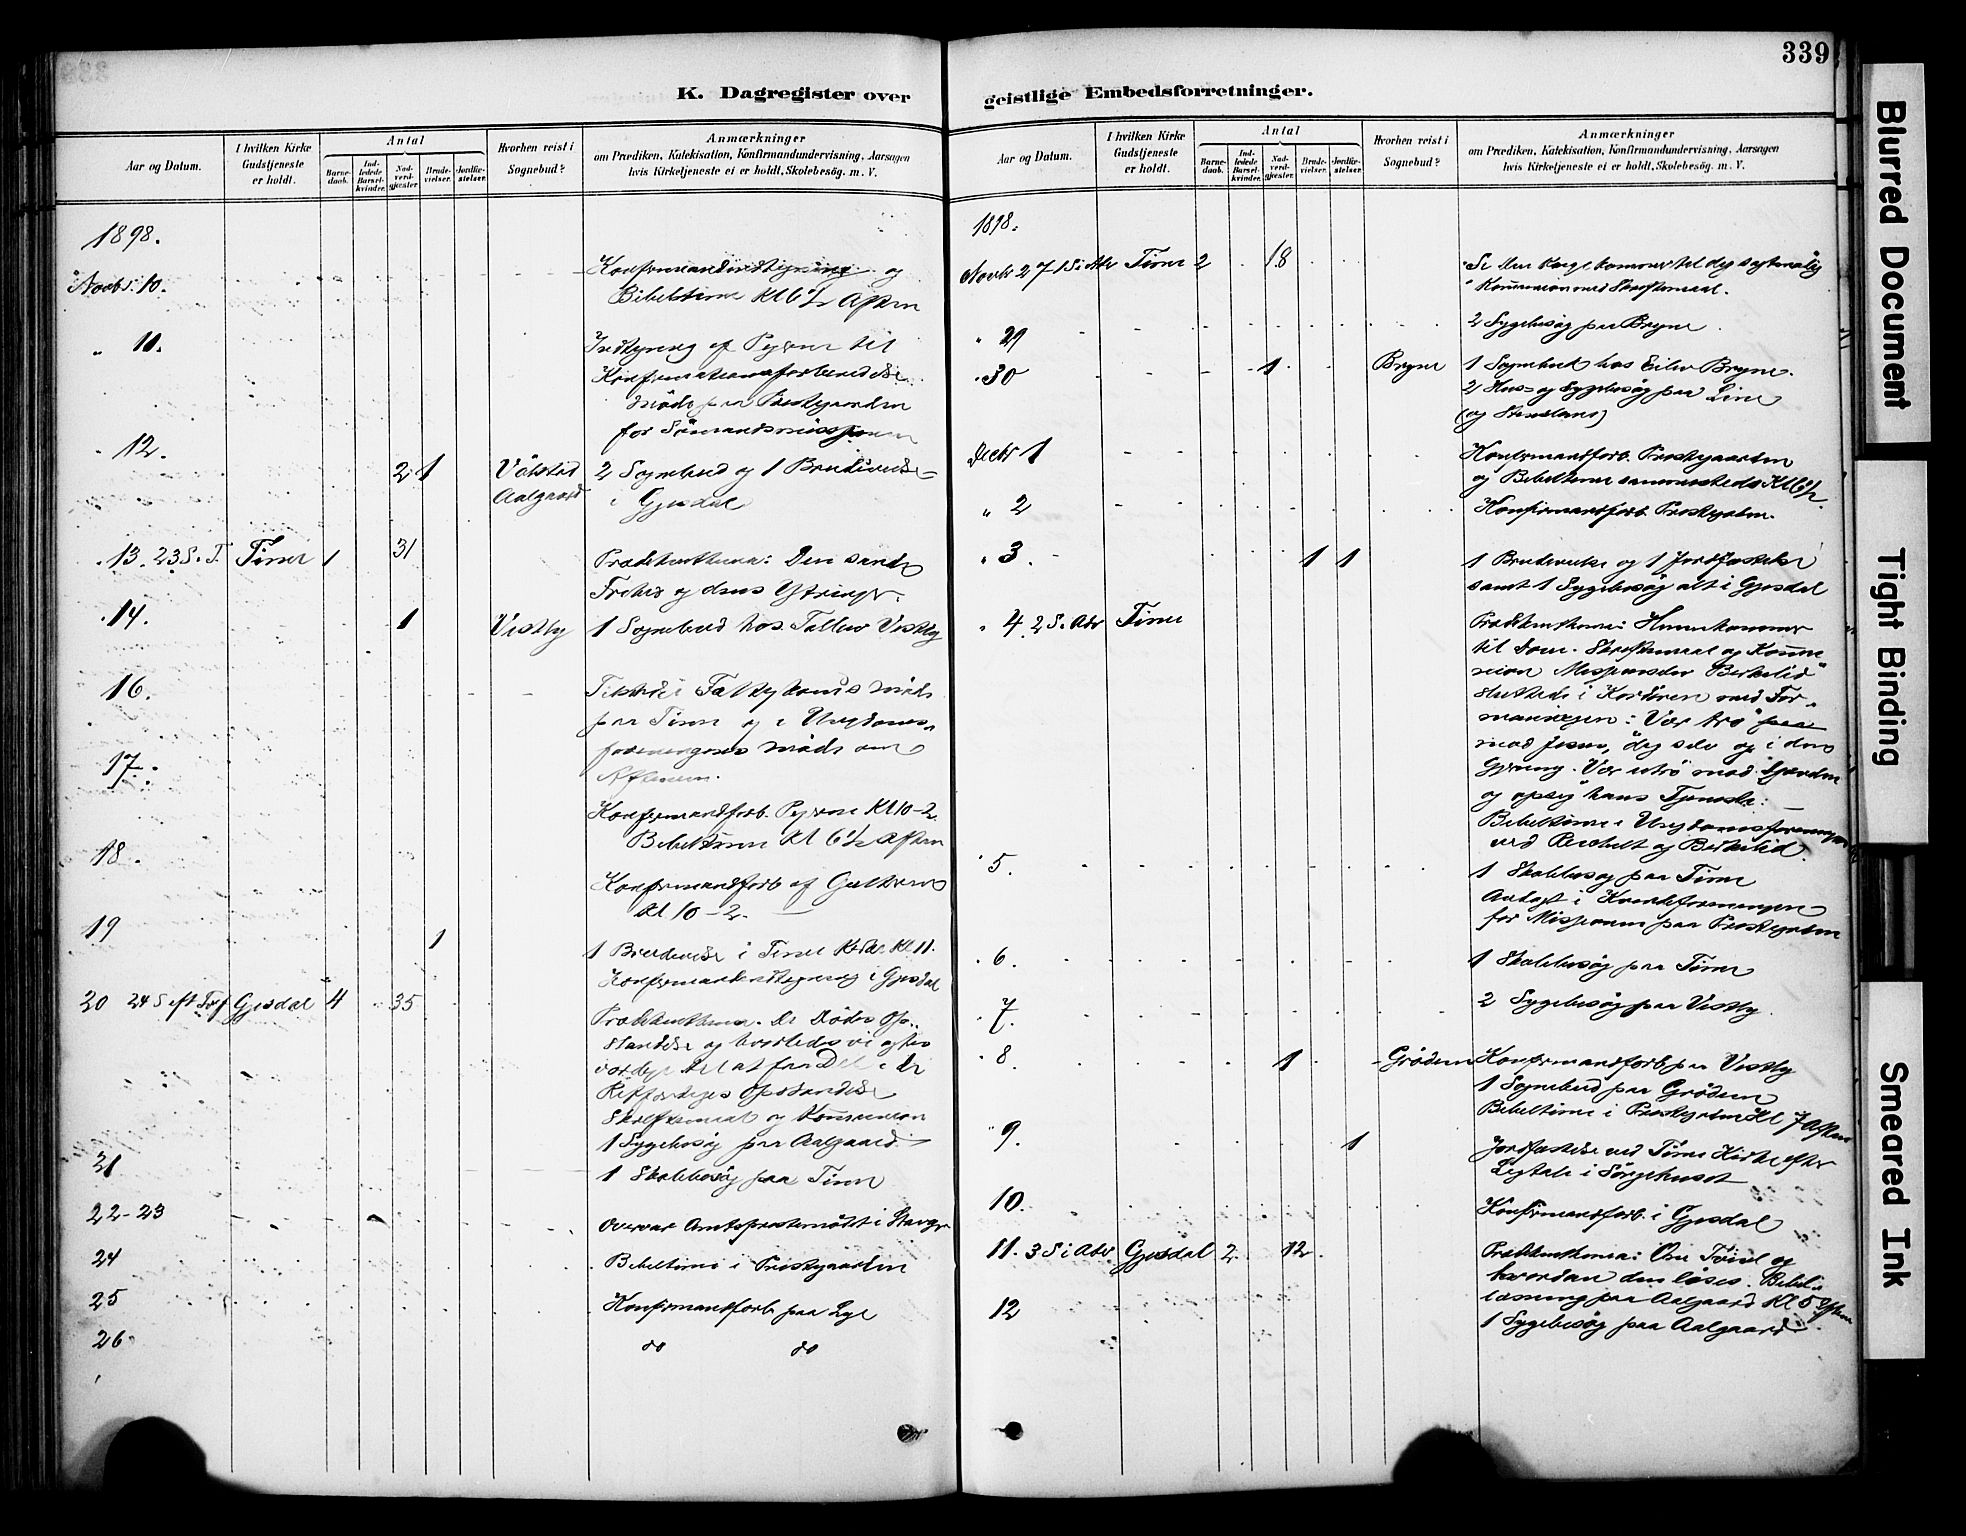 339
K. Dagregister over
geistlige Embedsforretninger.
Aar og Datum.
I hvilken Kirke
Gudstjeneste
er holdt.
Antal
Barne-
daab.
Ind-
ledede
Barsel-
kvinder.
Nad-
verd-
gjester.
Brude-
vielser.
Jordfæ-
stelser.
Hvorhen reist i
Sognebud?
Anmærkninger
om Prædiken, Katekisation, Konfirmandundervisning, Aarsagen
hvis Kirketjeneste ei er holdt, Skolebesög. m. V.
1898.
Novbr. 10.
Konfirmandindtegning og
Bibeltime Kl 6½ Aften
" 11.
Indtegning af Pigerne til
Konfirmationsforberedelse
Møde paa Prestegaarden
for Sømandsmissjonen
" 12. 2 1
Aalgaard
2 Sognebud og 1 Brudevielse
i Gjesdal
" 13. 23 S. e. T. Time 1 31
Prædikenthema: Den sande
Frihed og dens Ytringer.
" 14. 1 Vestly 1 Sognebud hos Tallev Vestly
16.
paa Time og i Ungdoms-
foreningens Møde om
Aftenen.
17.
Konfirmandforb. Pigerne Kl 10-2.
Bibeltime Kl 6½ Aften
18.
Konfirmandforb af Gutterne
Kl 10-2.
19 1
1 Brudevielse i Time Kirke Kl 11.
Konfirmandindtegning i Gjesdal
20 24 S eft Tref Gjesdal 4 35
Prædikenthema. De Dødes Op-
standelse og hvorledes vi agtes
værdige til at faa Del i de
Retfærdiges Opstandelse
Skriftemaal og Kommunion
1 Sygebesøg paa Aalgaard
21
1 Skolebesøg paa Time
22-23
Overvar Amtsprestemødet i Stavgr
24
Bibeltime i Prestegaarden
25
Konfirmandforb paa Lye
26
do do
Aar og Datum.
I hvilken Kirke
Gudstjeneste
er holdt.
Antal
Barne-
daab.
Ind-
ledede
Barsel-
kvinder.
Nad-
verd-
gjester.
Brude-
vielser.
Jordfæ-
stelser.
Hvorhen reist i
Sognebud?
Anmærkninger
om Prædiken, Katekisation, Konfirmandundervisning, Aarsagen
hvis Kirketjeneste ei er holdt, Skolebesög. m. V.
1898.
Novbr 27 1 S i Adv Time 2 18
Se din Konge kommer til dig sagtmodig
Kommunion med Skriftemaal.
" 29
2 Sygebesøg paa Bryne
" 30 1 Bryne 1 Sognebud hos Eilev Bryne.
2 Hus- og Sygebesøg paa Line
Decbr 1
Konfirmandforb. Prestegaarden
og Bibeltime sammesteds Kl 6½
" 2
Konfirmandforb. Prestegaarden.
" 3 1 1
1 Brudevielse og 1 Jordfæstelse
samt 1 Sygebesøg alt i Gjesdal
" 4. 2 S. Adv Time
Prædikenthema: Herren kommer
til Dom. Skriftemaal og Kommu-
nion Missjonær Birkelid
sluttede i Kordøren med For-
maningen: Vær tro paa
mod Jesus, dig selv og i din
Gjerning. Vær utro mod Synden
og opsig hans Tjeneste.
Bibeltime i Ungdomsforeningen
ved Reichelt og Birkelid.
" 5.
1 Skolebesøg paa Time
Andagt i Kvindeforeningen
for Missjonen paa Prestegaarden
" 6.
1 Skolebesøg paa Time
" 7.
2 Sygebesøg paa Vestly.
" 8. 1 Grødem Konfirmandforb paa Vestly
1 Sognebud paa Grødem
Bibeltime i Prestegaarden Kl 7 Aften
" 9. 1
Jordfæstelse ved Time Kirke efter
Ligtale i Sørgehuset
10.
Konfirmandforb. i Gjesdal
11. 3 S i Adv Gjesdal 2 12
Prædikenthema: Om Tvivl og
hvordan den løses. Bibel-
læsning paa Aalgaard Kl 5 Eften
12
1 Sygebesøg paa Aalgaard
Blurred Document
Tight Binding
Smeared Ink